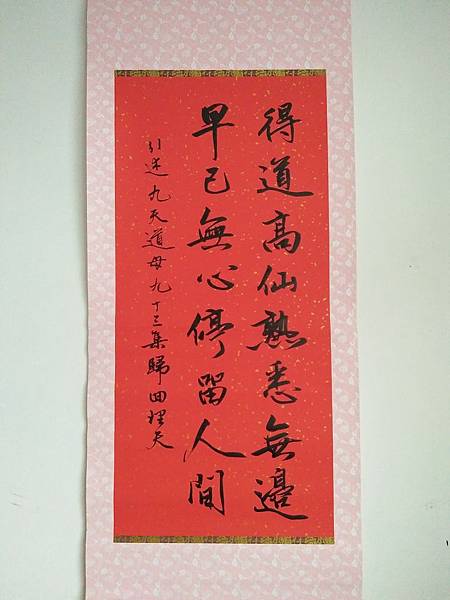 得道高仙熟悉無邊
早已無心停留人間
引述九天道母九十三集歸回理天